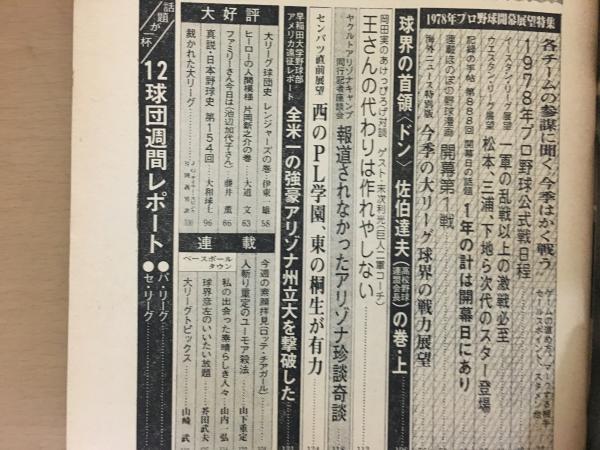 1978年プロ野球開幕展望特集
各チームの参謀に聞く、今季はかく戦う
ゲームの進め方、マークする相手
セールスポイント、スタメン他
1978年プロ野球公式戦日程
イースタン・リーグ展望 一軍の乱戦以上の激戦必至
ウエスタン・リーグ展望 松本、三浦、下地ら次代のスター登場
記録の手帖 第888回 開幕日の話題 1年の計は開幕日にあり
連載ほのぼの野球漫画 開幕第1戦
海外ニュース特別版 今季の大リーグ球界の戦力展望
球界の首領〈ドン〉 佐伯達夫(高校野球連盟会長)の巻・上
岡田実のあけっぴろげ対談 ゲスト・末次利光(巨人二軍コーチ)
王さんの代わりは作れやしない
ヤクルトアリゾナキャンプ同行記者座談会 報道されなかったアリゾナ珍談奇談
センバツ直前展望 西のPL学園、東の桐生が有力
早稲田大学野球部アメリカ遠征レポート 全米一の強豪アリゾナ州立大を撃破した
大好評
大リーグ球団史 レンジャーズの巻…伊東一雄 58
ヒーローの人間模様 片岡新之介の巻…大道文 63
ファミリーさん今日は(池辺加代子さん)…藤井薫 86
真説・日本野球史 第154回…大和球士 96
裁かれた大リーグ
連載
今週の素顔拝見(ロッテ・チアガール)
人斬り重定のユーモア殺法…山下重定
私の出会った素晴らしき人々…山内一弘
球界彦左のいいたい放題…芥田武夫
ベースボールタウン
大リーグトピックス…山崎武
話題が一杯
12球団週間レポート
●パ・リーグ
●セ・リーグ